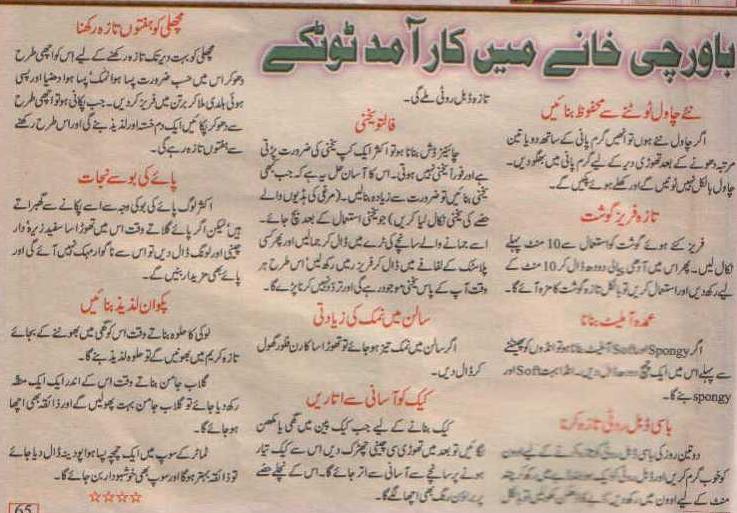 باورچی خانے میں کارآمد ٹوٹکے
نئے چاول ٹوٹنے سے محفوظ بنائیں
اگر چاول نئے ہوں تو انھیں گرم پانی کے ساتھ دو یا تین
مرتبہ دھونے کے بعد تھوڑی دیر کے لیے گرم پانی میں بھگو دیں۔
چاول بالکل نہیں ٹوٹیں گے اور کھلے ہوئے پکیں گے۔
تازہ فریز گوشت
فریز کئے ہوئے گوشت کو استعمال سے 10 منٹ پہلے
نکال لیں۔ پھر اس میں آدھی پیالی دودھ ڈال کر 10 منٹ کے
لیے رکھ دیں اور استعمال کریں تو بالکل تازہ گوشت کا مزہ آئے گا۔
عمدہ آملیٹ بنانا
اگر Spongy اور Soft آملیٹ بنانا ہو تو انڈوں کو پھینٹنے
سے پہلے اس میں ایک چمچ ڈال دیں۔ انڈا بہت Soft اور
spongy بنے گا۔
باسی ڈبل روٹی تازہ کرنا
دو تین روز کی باسی ڈبل روٹی کو تازہ کرنے کے لیے اوون
کو خوب گرم کریں اور ڈبل روٹی کو ایک میں رکھ کر چند
منٹ کے لیے اوون میں رکھ دیں۔ بالکل
تازہ ڈبل روٹی ملے گی۔
فالتو یخنی
چائنیز ڈش بنانا ہو تو اکثر ایک کپ یخنی کی ضرورت پڑتی
ہے اور فوراً یخنی نہیں ہوتی۔ اس کا آسان حل یہ ہے کہ جب کبھی
یخنی بنائیں تو ضرورت سے زیادہ بنالیں۔ (مرغی کی ہڈیوں والے
حصے کی یخنی نکال لیا کریں) جو یخنی استعمال کے بعد بچ جائے۔
اسے جمانے والے سانچے کی ٹرے میں ڈال کر جمالیں اور پھر کسی
پلاسٹک کے لفافے میں ڈال کر فریزر میں رکھ لیں اس طرح ہر
وقت آپ کے پاس یخنی موجود رہے گی اور تردد نہیں کرنا پڑے گا۔
سالن میں نمک کی زیادتی
اگر سالن میں نمک تیز ہو جائے تو تھوڑا سا کارن فلور گھول
کر ڈال دیں۔
کیک کو آسانی سے اتاریں
کیک بنانے کے لیے جب کیک پین میں گھی یا مکھن
لگائیں تو بعد میں تھوڑی سی چینی چھڑک دیں اس سے کیک تیار
ہونے پر سانچے سے آسانی سے اتر جائے گا۔ اس کے نچلے حصے
پر براؤن رنگ بھی اچھا لگے گا۔
مچھلی کو ہفتوں تازہ رکھنا
مچھلی کو بہت دیر تک تازہ رکھنے کے لیے اس کو اچھی طرح
دھو کر اس میں حسب ضرورت پسا ہوا نمک پسا ہوا دھنیا اور پسی
ہوئی ہلدی ملا کر برتن میں فریز کر دیں۔ جب پکانی ہو تو اچھی طرح
سے دھو کر پکائیں ایک دم خستہ اور لذیذ بنے گی اور اس طرح رکھنے
سے ہفتوں تازہ رہے گی۔
پائے کی بو سے نجات
اکثر لوگ پائے کی بو کی وجہ سے اسے پکانے سے گھبراتے
ہیں لیکن اگر پائے گلاتے وقت اس میں تھوڑا سا سفید زیرہ وار
چینی اور لونگ ڈال دیں تو اس سے ناگوار مہک نہیں آئے گی اور
پائے بھی مزیدار بنیں گے۔
پکوان لذیذ بنائیں
لوکی کا حلوہ بناتے وقت اس کو گھی میں بھوننے کے بجائے
تازہ کریم میں بھونیں گے تو حلوہ لذیذ بنے گا۔
گلاب جامن بناتے وقت اس کے اندر ایک ایک منقہ
رکھ دیا جائے تو گلاب جامن بہت پھولیں گے اور ذائقہ بھی اچھا
ہو جائے گا۔
ٹماٹر کے سوپ میں ایک چمچہ پسا ہوا پودینہ ڈال دیا جائے
تو ذائقہ بہتر ہوگا اور سوپ بھی خوشبودار بن جائے گا۔
☆☆☆☆
65